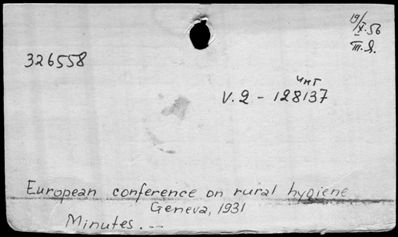 19/X.56
III. Я.
326558
ЧИТ
V.2 - 128137
European conference on rural hygiene
Geneva, 1931
Minutes. --